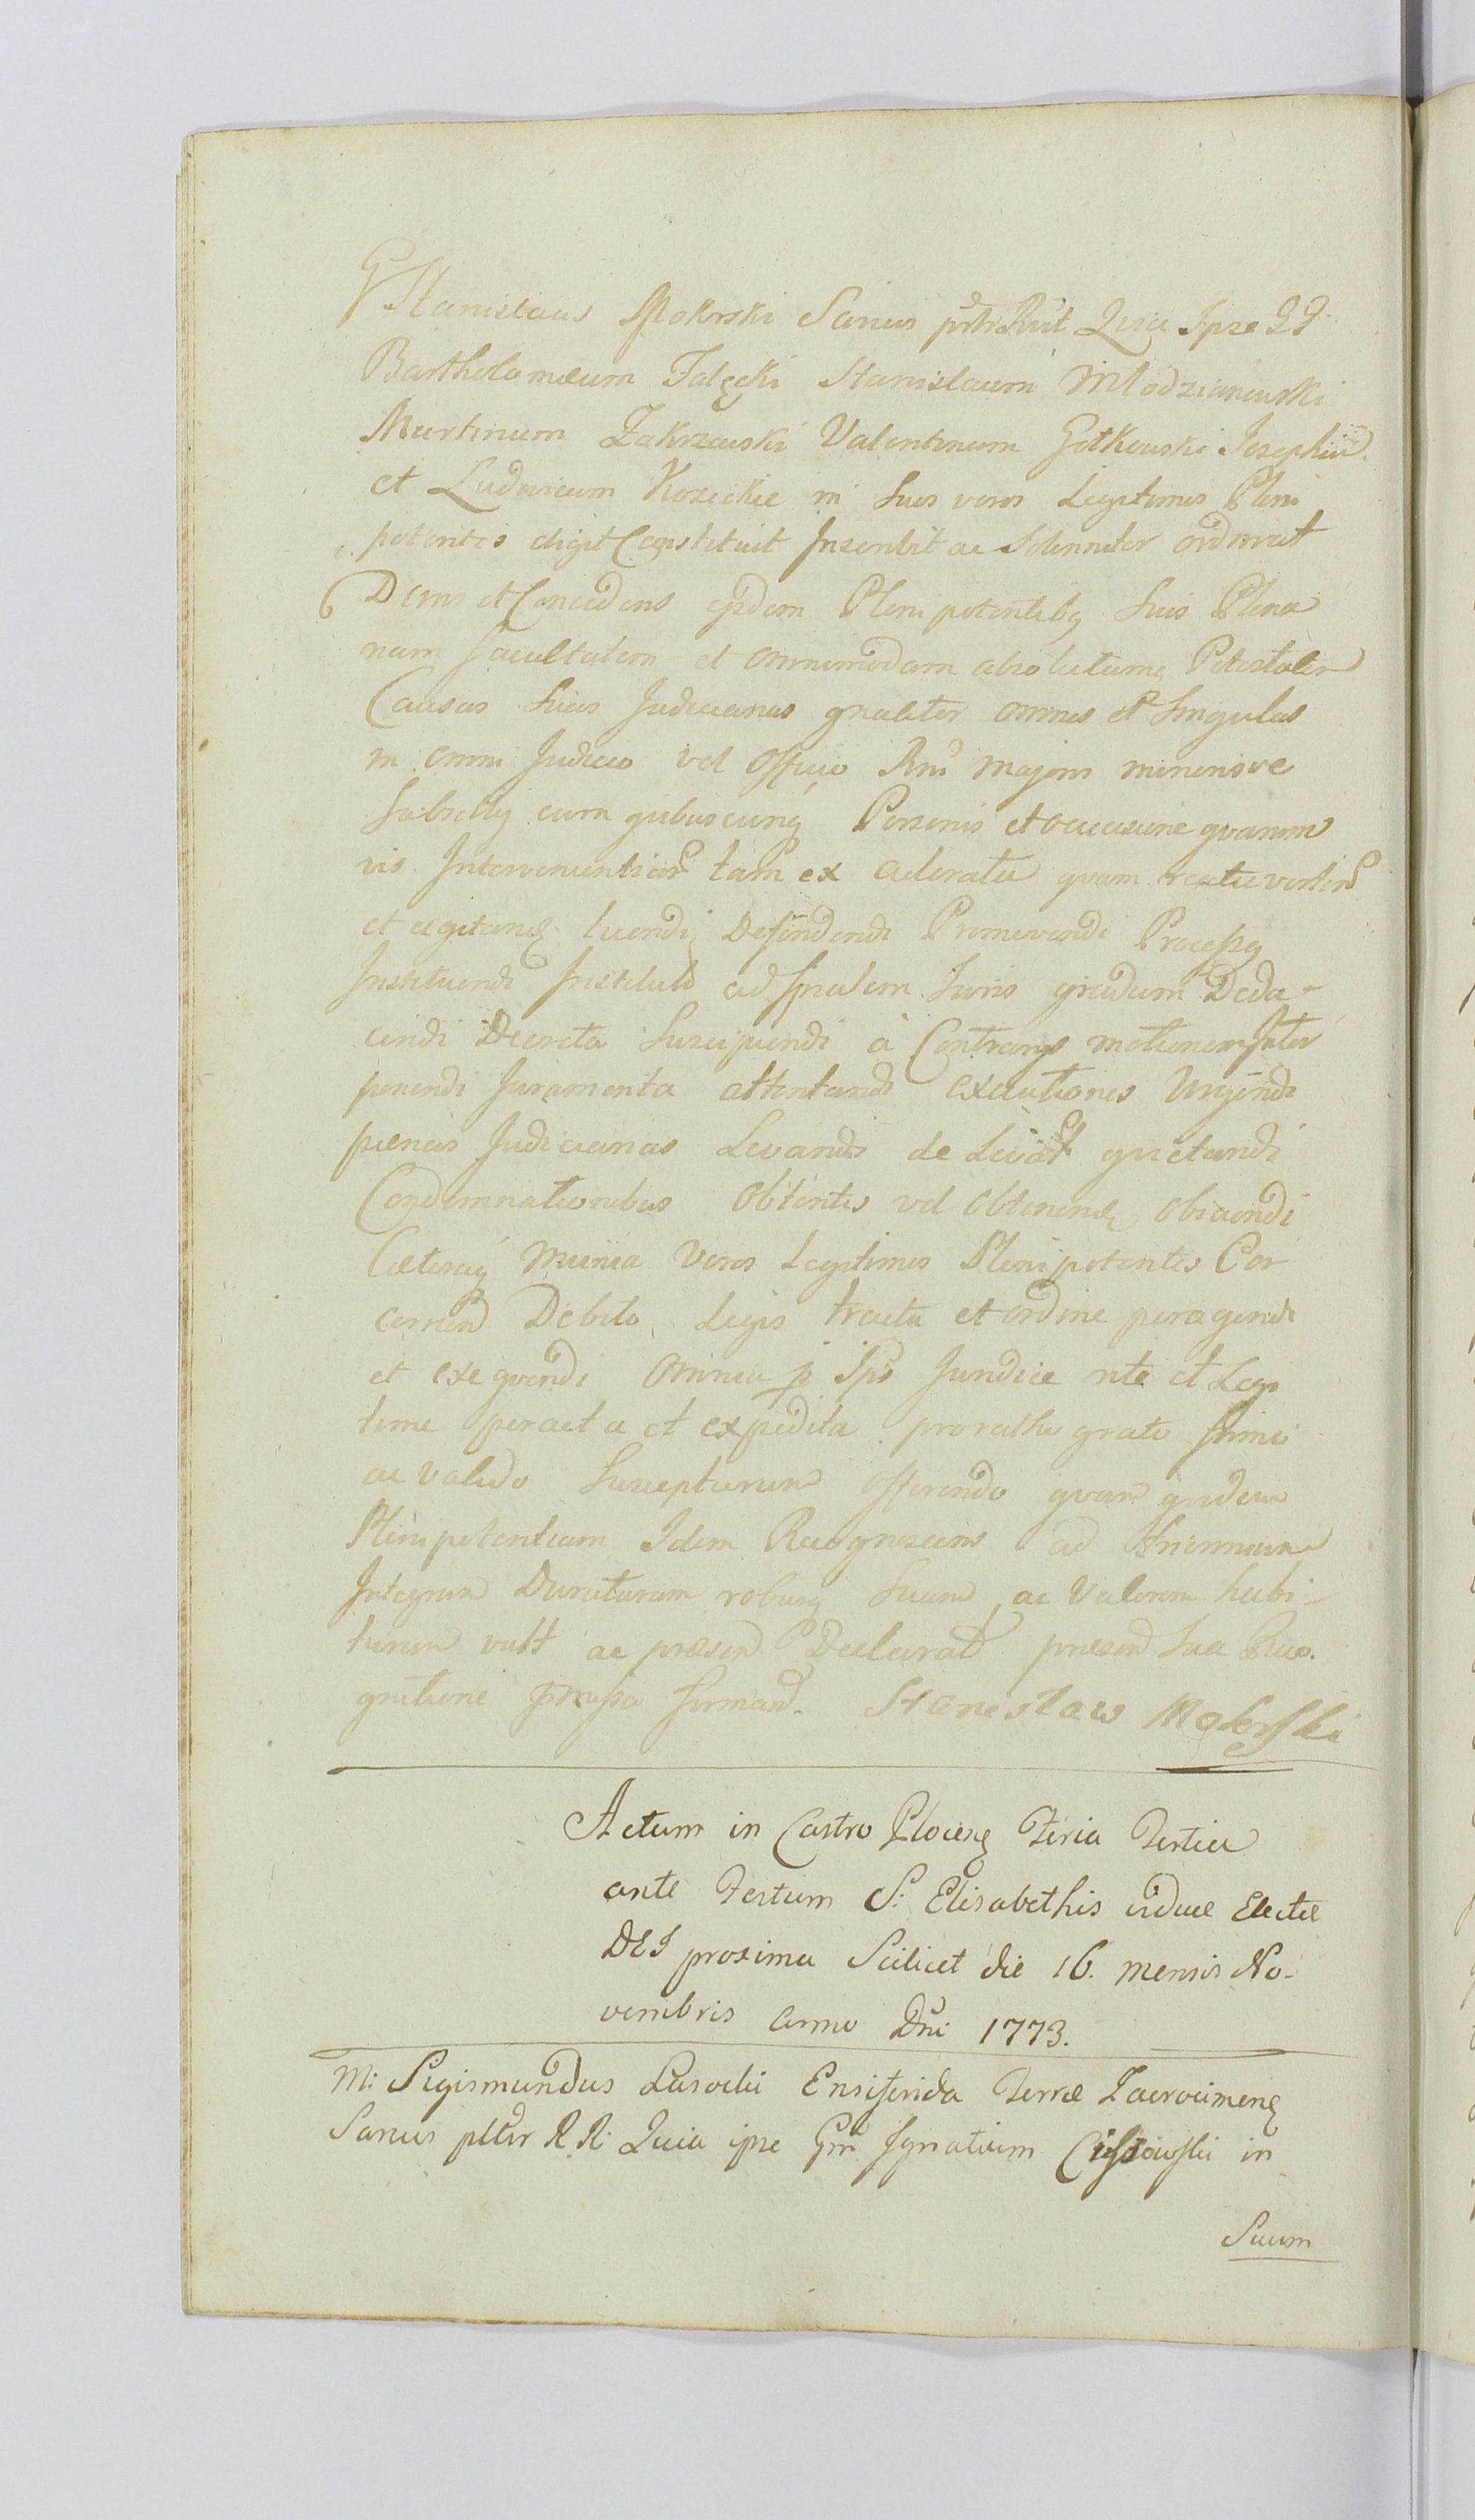 G Stanislaus Mokrski Sanus Quia Ipse GG
Bartholomæum Falęcki Stanislaum Młodzianowski
Martinum Zakrzewski Valentinum Gotkowski Josephū
et Ludovicum Kozickie in suos veros Legitimos Pleni
potentes eligit Constituit Inscribit ac Solenniter ordinavit
Dans et Concedens Plenipotentibq suis Plena
riam facultatem et omnimodam absolutamq Potestatem
Causas suas Judiciarias gnaliter omnes et Singulas
in omni Judicio vel Officio Rni majoris minorisve
Subsellij cum qvibuscunq Personis et occasione qvarum
vis tam ex actoratu qvam reatu
et agitand tuendi Defendendi Promovendi Processq
Instituendi ad finalem Juris gradum Dedu-
cendi Decreta Suscipiendi à motionem Inter
ponendi Juramenta attentandi executiones Urgendi
pænas Judiciarias Levandi de qvietandi
Condemnationibus obtentis vel obtinend obicendi
Cæteraq Munia Veros Legitimos Plenipotentes Con
cernen Debito Legis tractu et ordine peragendi
et exeqvendi omnia p Ipos Juridice rite et Legi
time peracta et expedita pro rathi grato firmo
ac valido Suscepturum offerendo qvam qvidem
Plenipotentiam Idem Recognoscens ad triennium
Integrum Duraturam roburq suum ac Valorem habi-
turam vult ac præsen Declarat præsen sua Reco.
gnitione mediante. Stanisław Mokrski
Actum in Castro Plocen Feria Tertia
ante Festum S: Elisabethis viduæ Electæ
DEI proxima Scilicet die 16. mensis No-
vembris Anno Dni 1773.
M: Sigismundus Lasocki Ensiferida Terræ Zacrocimen
Sanus R R: Quia ipse Gm Ignatium in
Suum